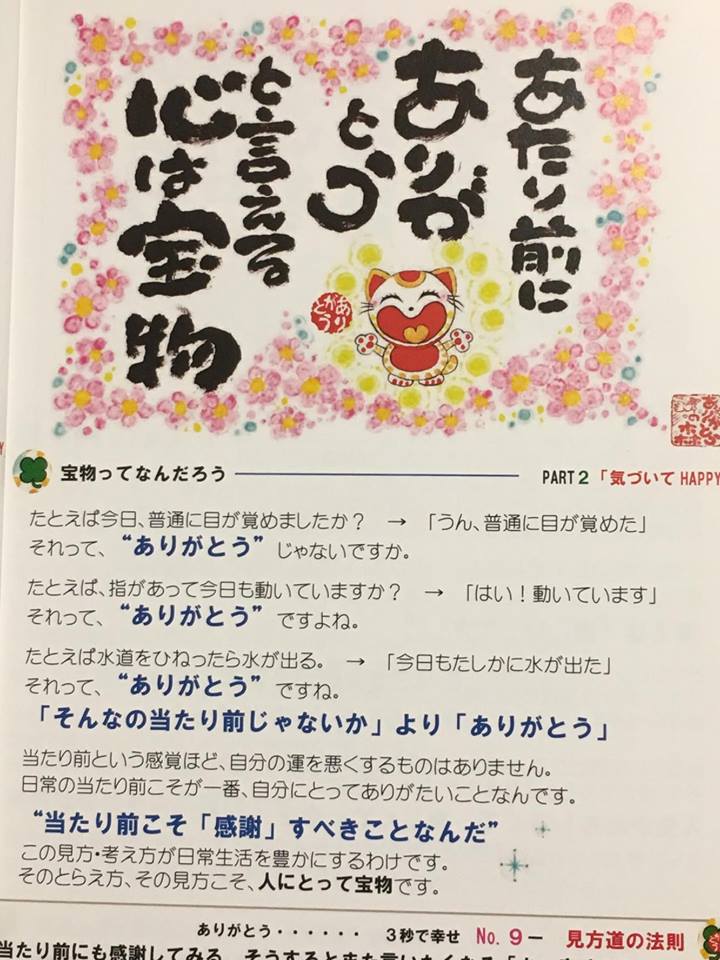 あたり前に
ありが
とう
と言える
心は宝物
ありがとう
宝物ってなんだろう
PART2「気づいてHAPPY
たとえば今日、普通に目が覚めましたか？ → 「うん、普通に目が覚めた」
それって、“ありがとう”じゃないですか。
たとえば、指があって今日も動いていますか？ → 「はい！動いています」
それって、“ありがとう”ですよね。
たとえば水道をひねったら水が出る。 → 「今日もたしかに水が出た」
それって、“ありがとう”ですね。
「そんなの当たり前じゃないか」より「ありがとう」
当たり前という感覚ほど、自分の運を悪くするものはありません。
日常の当たり前こそが一番、自分にとってありがたいことなんです。
“当たり前こそ「感謝」すべきことなんだ”
この見方・考え方が日常生活を豊かにするわけです。
そのとらえ方、その見方こそ、人にとって宝物です。
ありがとう・・・・・・ 3秒で幸せ No.9− 見方道の法則
当たり前にも感謝してみる。そうするとまた言いたくなる「